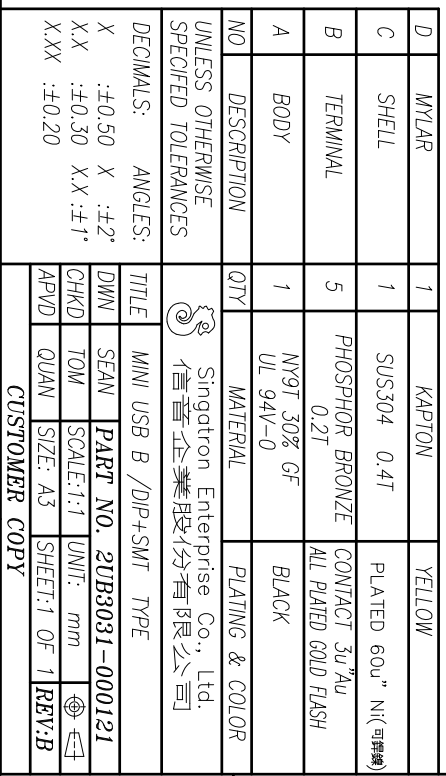 D MYLAR 1 KAPTON YELLOW
C SHELL 1 SUS304 0.4T PLATED 60u" Ni(可銲錫)
B TERMINAL 5 PHOSPHOR BRONZE 0.2T CONTACT 3u"Au ALL PLATED GOLD FLASH
A BODY 1 NY9T 30% GF UL 94V-0 BLACK
NO DESCRIPTION QTY MATERIAL PLATING & COLOR
UNLESS OTHERWISE
SPECIFED TOLERANCES
DECIMALS: ANGLES:
X :±0.50 X :±2°
X.X :±0.30 X.X :±1°
X.XX :±0.20
Singatron Enterprise Co., Ltd.
信音企業股份有限公司
TITLE MINI USB B /DIP+SMT TYPE
DWN SEAN PART NO. 2UB3031-000121
CHKD TOM SCALE:1:1 UNIT: mm
APVD QUAN SIZE: A3 SHEET:1 OF 1 REV:B
CUSTOMER COPY